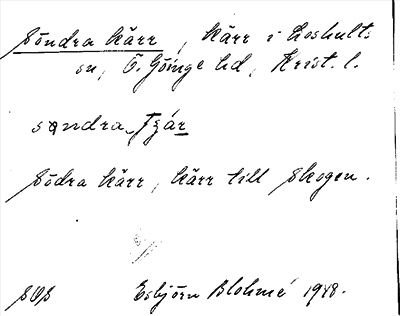 Söndra kärr, kärr i Loshults
sn, Ö. Göinge hd, Krist. l.
Södra kärr, kärr till skogen.
SOS Esbjörn Blohmé 1948.